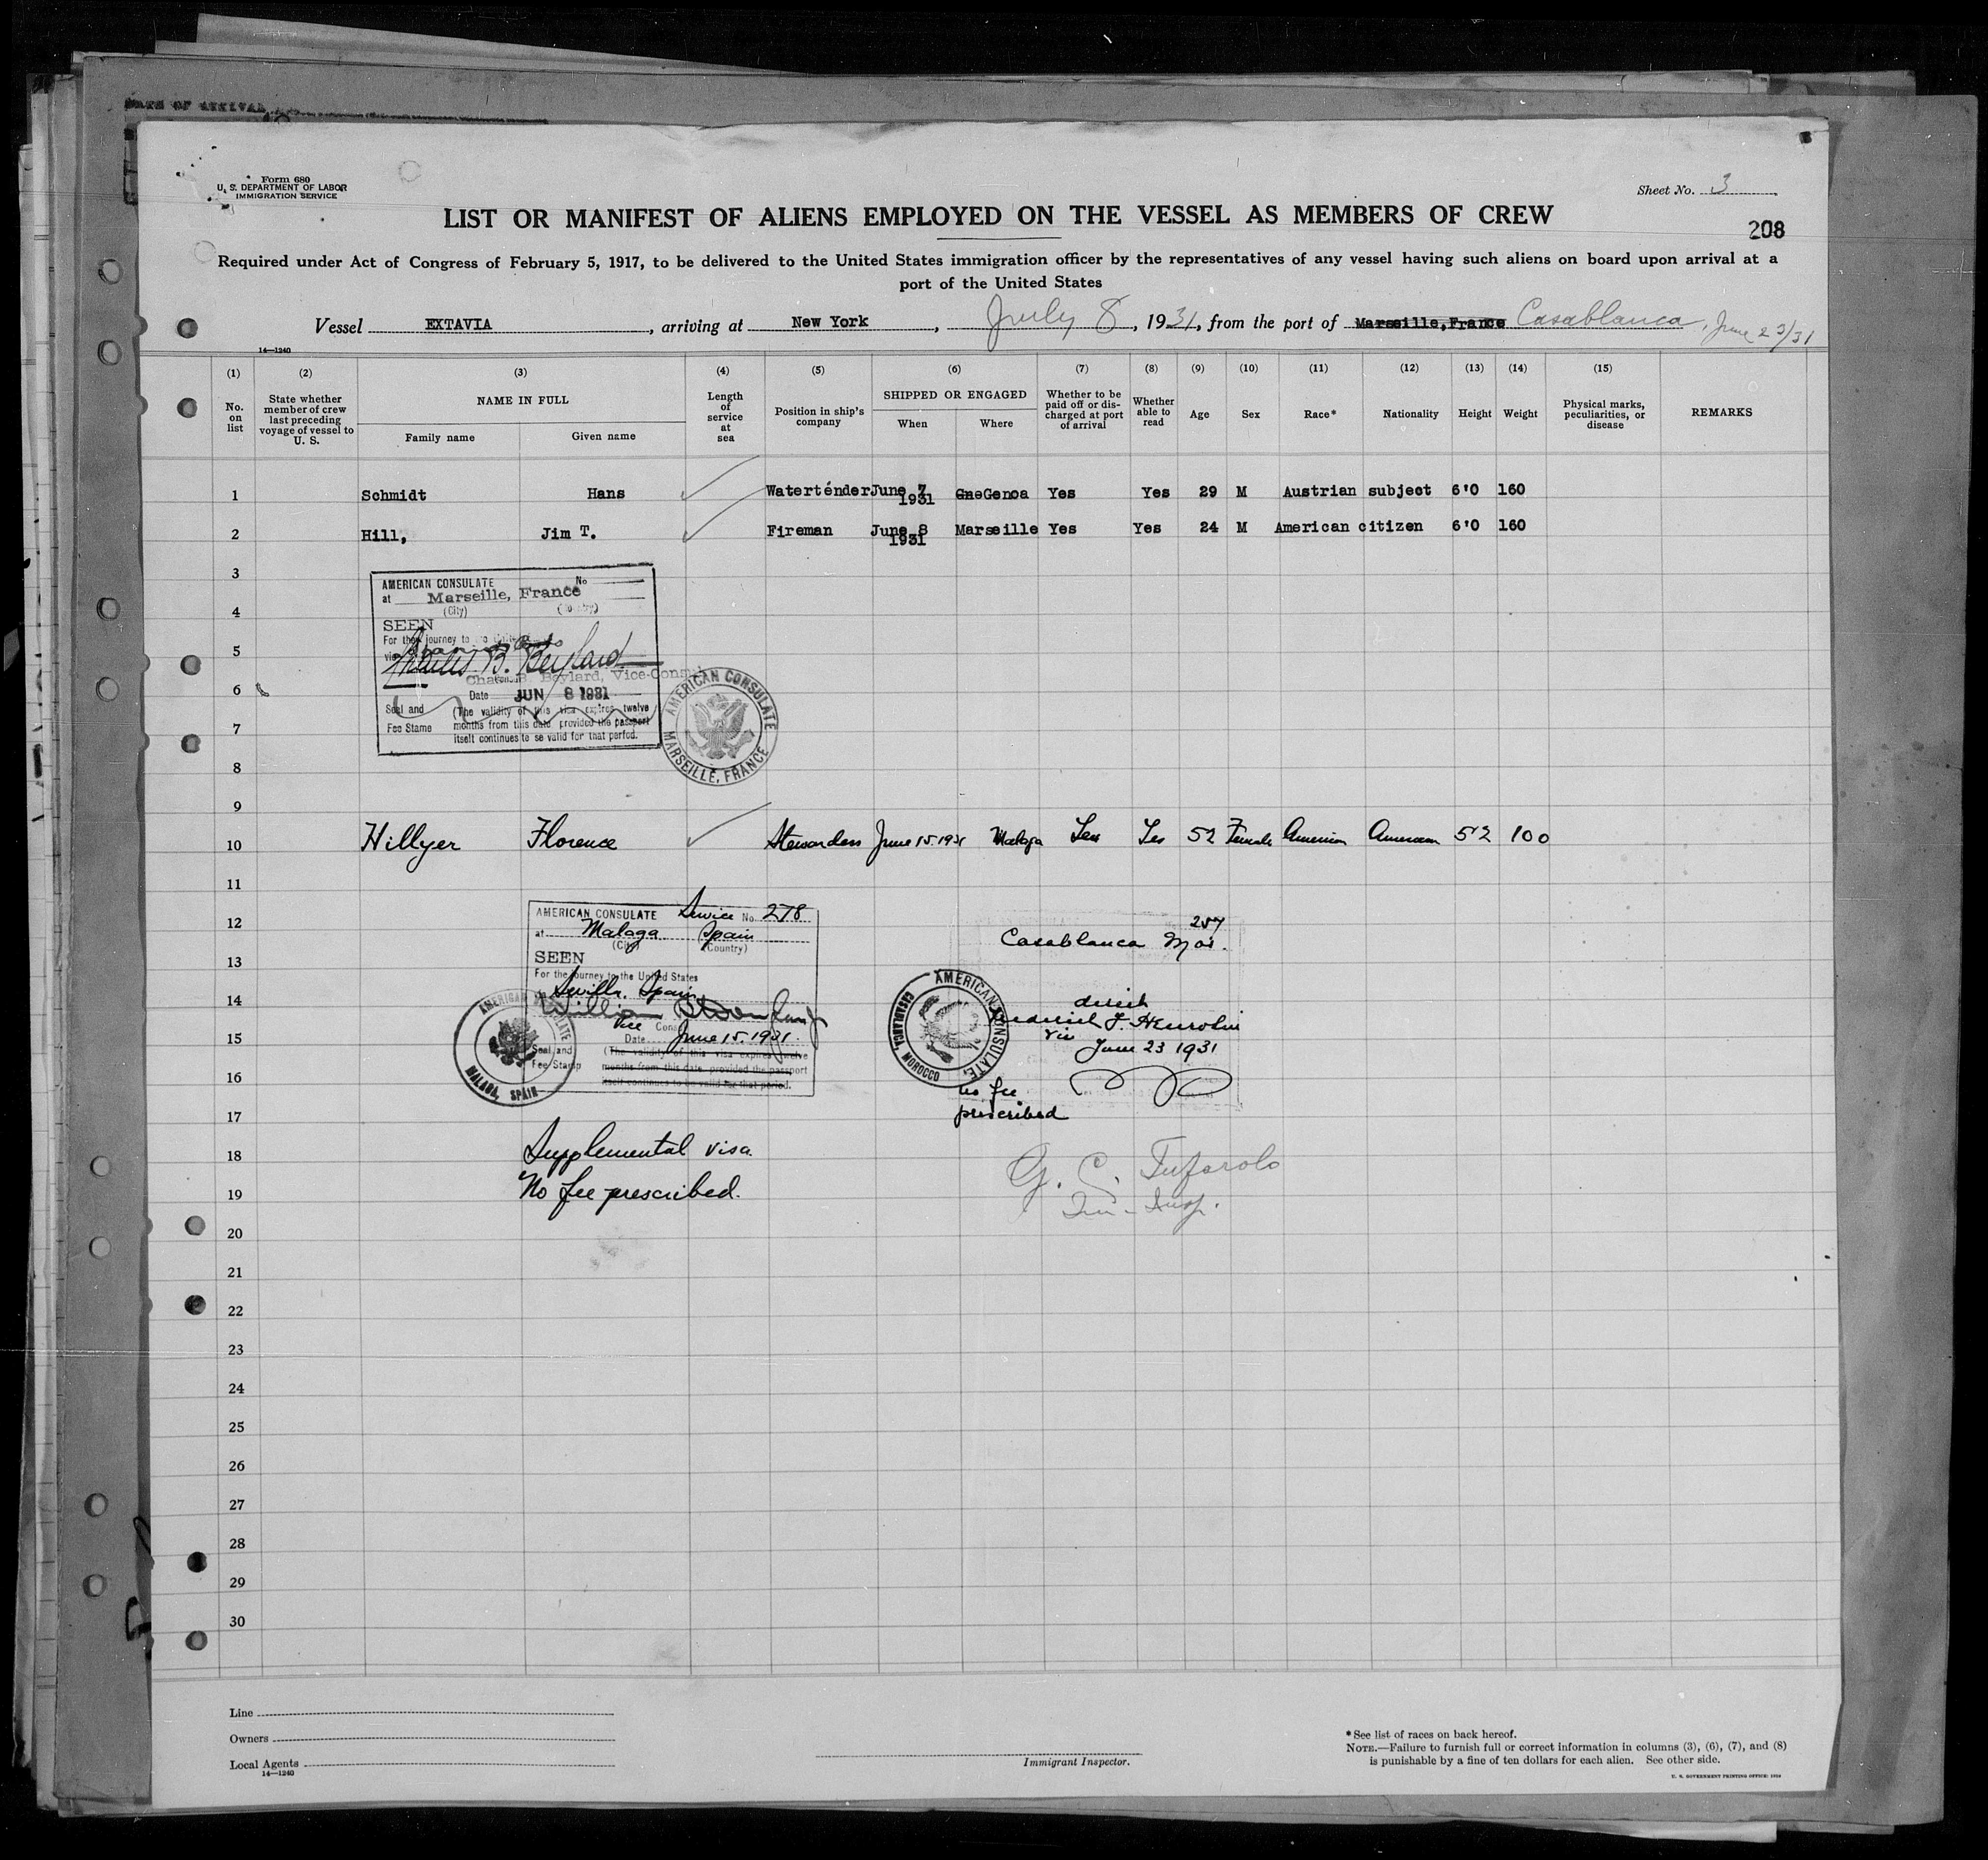 DATE OF ARRIVAL
Form 680
U. S. DEPARTMENT OF LABOR
IMMIGRATION SERVICE
Sheet No. 3
LIST OR MANIFEST OF ALIENS EMPLOYED ON THE VESSEL AS MEMBERS OF CREW
208
Required under Act of Congress of February 5, 1917, to be delivered to the United States immigration officer by the representatives of any vessel having such aliens on board upon arrival at a
port of the United States
Vessel EXTAVIA, arriving at New York, July 8, 1931, from the port of Marseille,France Casablanca, June 23/31
14—1240
(1) (2) (3) (4) (5) (6) (7) (8) (9) (10) (11) (12) (13) (14) (15)
No. on list
State whether member of crew last preceding voyage of vessel to U. S.
NAME IN FULL
Family name Given name
Length of service at sea
Position in ship's company
SHIPPED OR ENGAGED
When Where
Whether to be paid off or discharged at port of arrival
Whether able to read
Age
Sex
Race*
Nationality
Height
Weight
Physical marks, peculiarities, or disease
REMARKS
1 Schmidt Hans Waterténder June 7 1931 Gne Genoa Yes Yes 29 M Austrian subject 6'0 160
2 Hill, Jim T. Fireman June 8 1931 Marseille Yes Yes 24 M American citizen 6'0 160
3
4
5
6
7
8
9
AMERICAN CONSULATE No
at Marseille, France
(City)
SEEN
For the journey to
via
Charles B. Beylard
Chas. B Beylard, Vice-Consul
Date JUN 8 1931
Seal and
Fee Stame
(The validity of this visa expires twelve
months from this date provided the passport
itselt continues to se valid for that perfod.
AMERICAN CONSULATE
MARSEILLE, FRANCE
10 Hillyer Florence Stewardess June 15.1931 Malaga Yes Yes 52 Female American American 5'2 100
11
12
13
14
15
16
17
18
19
20
21
22
23
24
25
26
27
28
29
30
AMERICAN CONSULATE Service No. 278
at Malaga Spain
(City) (Country)
SEEN
For the journey to the United States
Sevilla, Spain
William
Vice Consul
Date June 15. 1931.
Seal and
Fee Stamp
(The validity of this visa expires twelve
months from this date provided the passport
itself continues to be valid for that period.
AMERICAN CONSULATE
MALAGA, SPAIN
Supplemental visa.
No fee prescribed.
257
Casablanca Mor.
direct
June 23 1931
AMERICAN CONSULATE,
CASABLANCA, MOROCCO
no fee
prescribed
G. C. Tufarolo
Im- Insp.
Line
Owners
Local Agents
14—1240
Immigrant Inspector.
*See list of races on back hereof.
NOTE.—Failure to furnish full or correct information in columns (3), (6), (7), and (8)
is punishable by a fine of ten dollars for each alien. See other side.
U. S. GOVERNMENT PRINTING OFFICE: